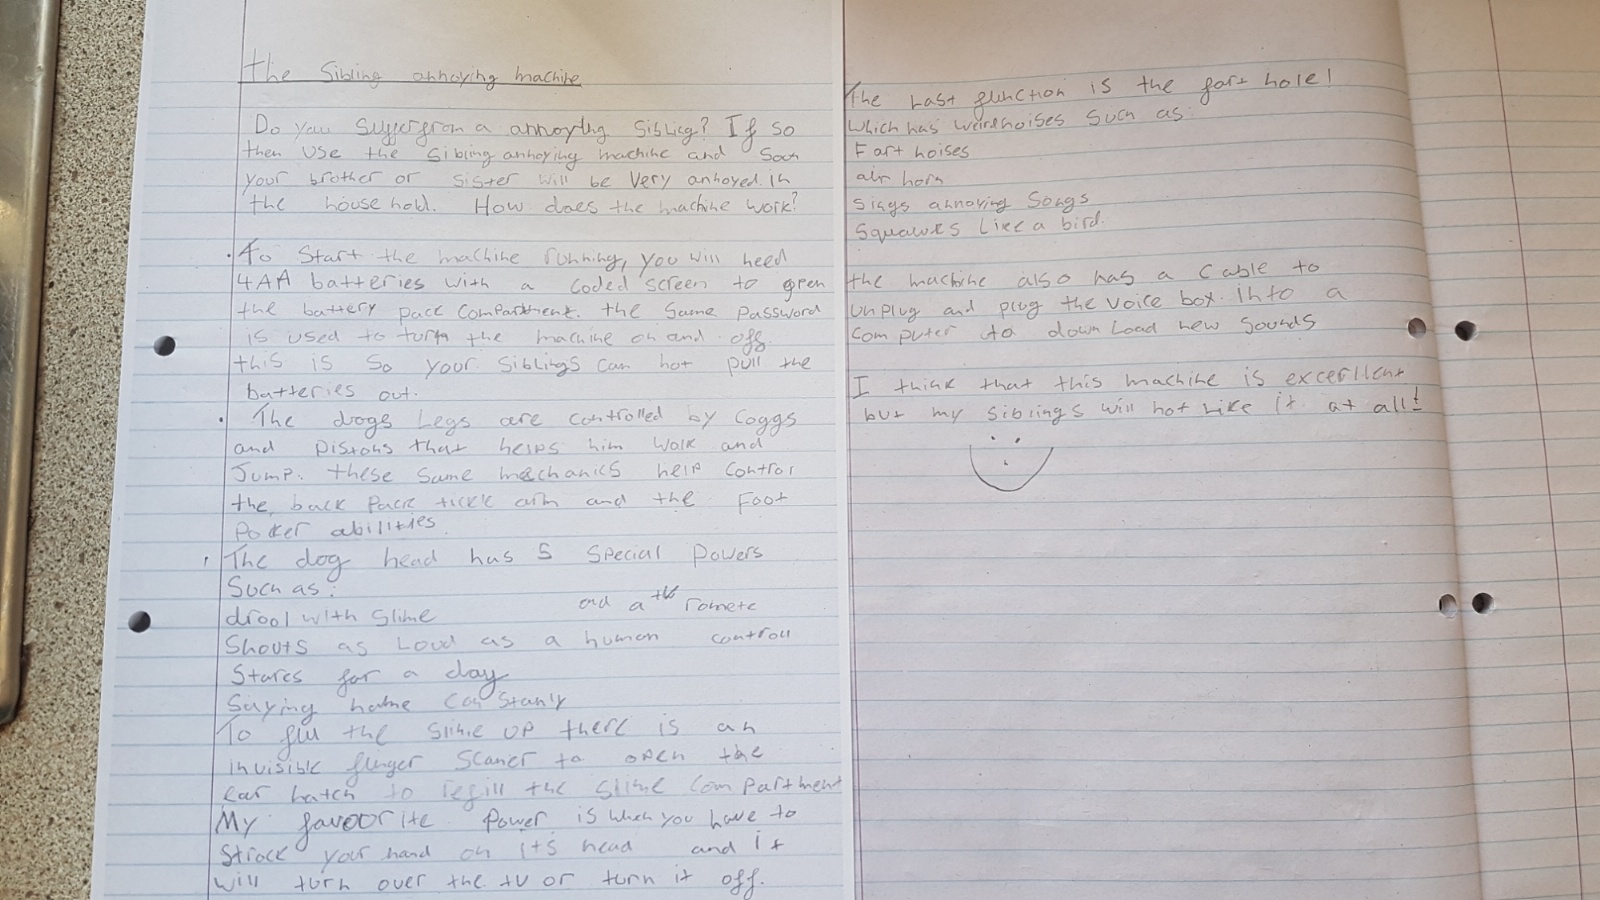 the Sibling annoying machine
Do you suffer from a annoything Sibling? If so
then use the sibling annoying machine and soon
your brother or sister will be very annoyed in
the house hold. How does the machine work?
• To Start the machine running, you will need
4AA batteries with a coded screen to open
the battery pack compartment. the same password
is used to turn the machine on and off.
this is so your siblings can not pull the
batteries out.
• The dogs Legs are controlled by Coggs
and Pistons that helps him walk and
Jump. these same mechanics help control
the back pack tickle arm and the Foot
Poker abilities.
• The dog head has 5 special powers
Such as:
drool with slime
Shouts as Loud as a human
Stares for a day
Saying name constanly
and a tv romete
controll
To fill the slime up there is an
invisible finger scaner to open the
ear hatch to refill the slime compartment
My favoorite power is when you have to
Strock your hand on its head and it
will turn over the tv or turn it off.
The Last function is the fart hole!
which has weird noises such as:
Fart noises
air horn
sings annoying Songs
Squawks Like a bird.
the machine also has a cable to
unplug and plug the voice box into a
computer to down Load new sounds
I think that this machine is excerllent
but my siblings will not like it at all!